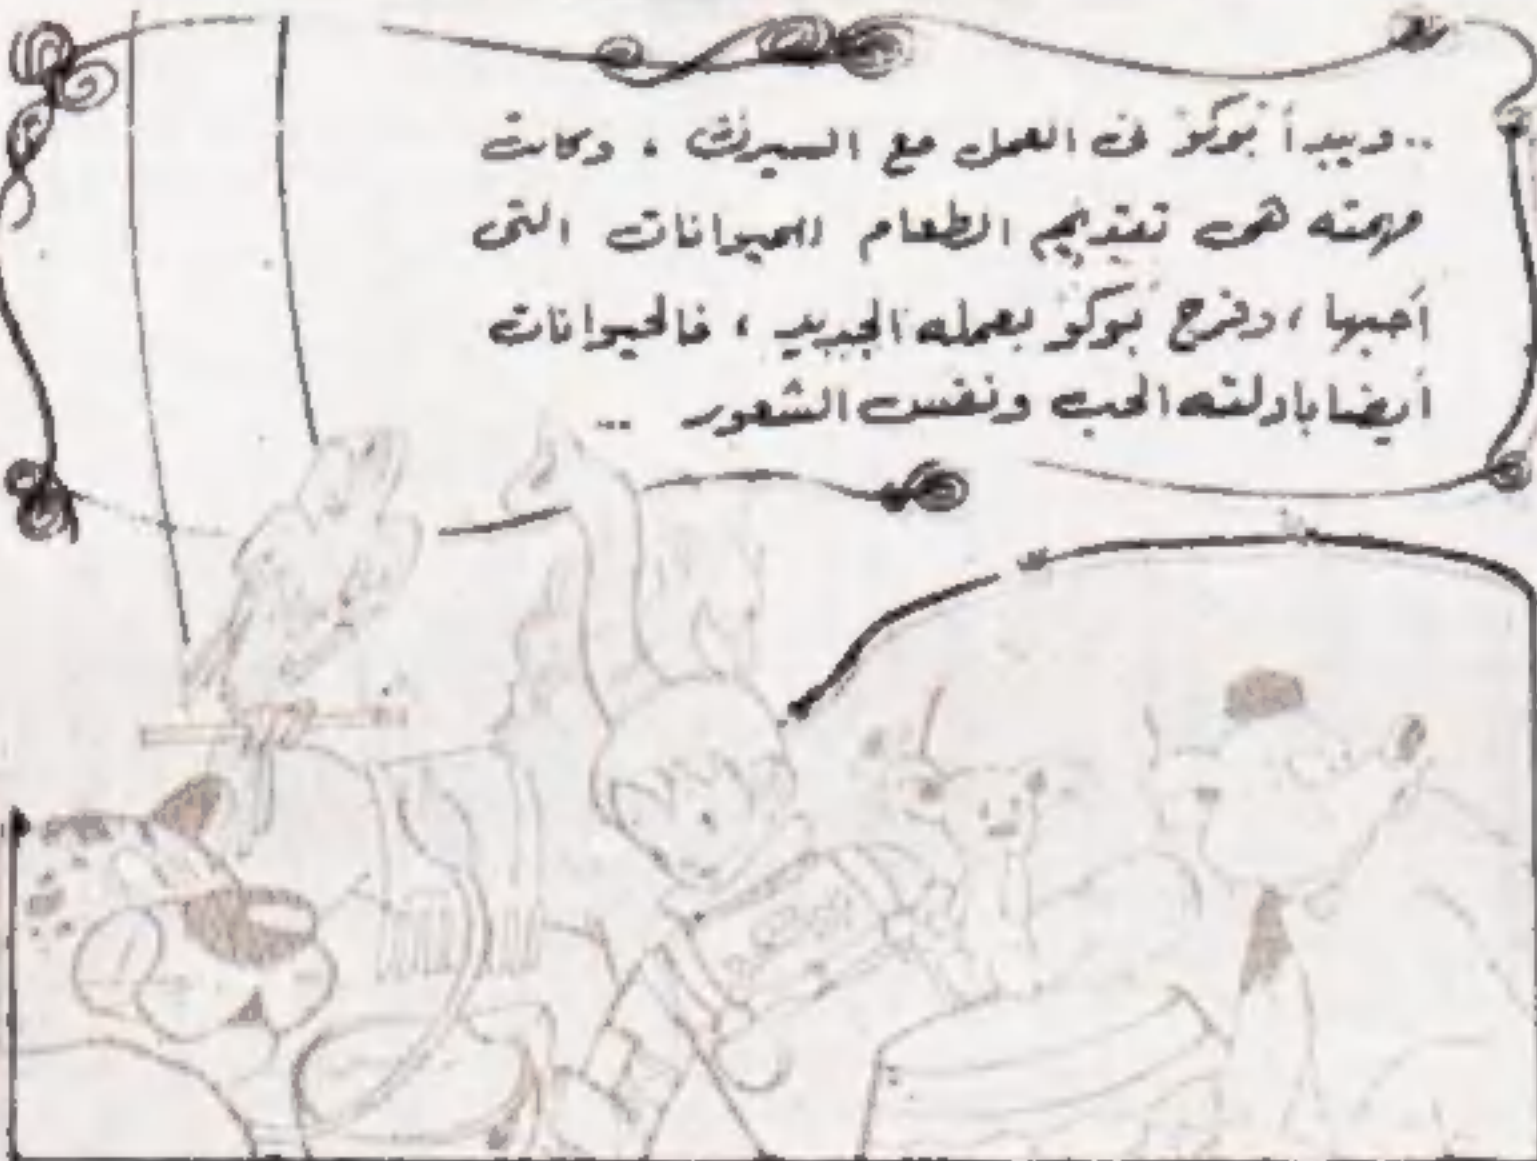 ..ويبدأ بوكو فى العمل مع السيرك ، وكانت
مهمته هى تقديم الطعام للحيوانات التى
أحبها ، وفرح بوكو بعمله الجديد ، فالحيوانات
أيضا بادلته الحب ونفس الشعور ...